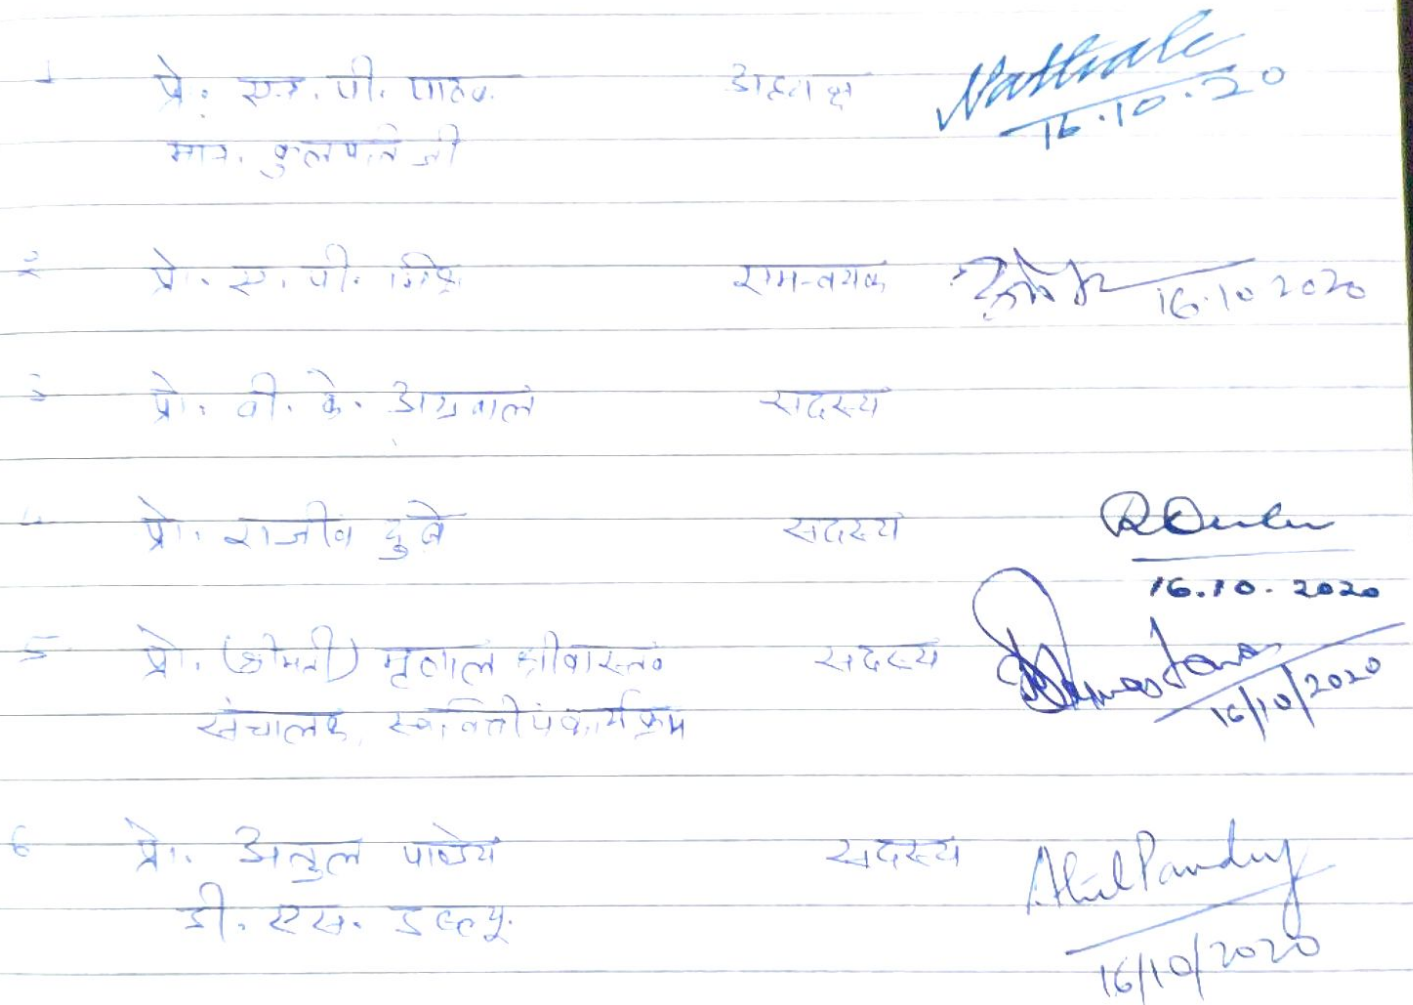 1 प्रो. एन. पी. पाठक अध्यक्ष
16.10.20
मान. कुलपति जी
2 प्रो. ए. पी. मिश्र समन्वयक 16.10.2020
3 प्रो. वी. के. अग्रवाल सदस्य
4 प्रो. राजीव दुबे सदस्य RDubey
16.10.2020
5 प्रो. (श्रीमती) मृणाल श्रीवास्तव सदस्य
16/10/2020
संचालक, स्ववित्तीय कार्यक्रम
6 प्रो. अतुल पाण्डेय सदस्य Atul Pandey
डी. एस. डब्ल्यू.
16/10/2020